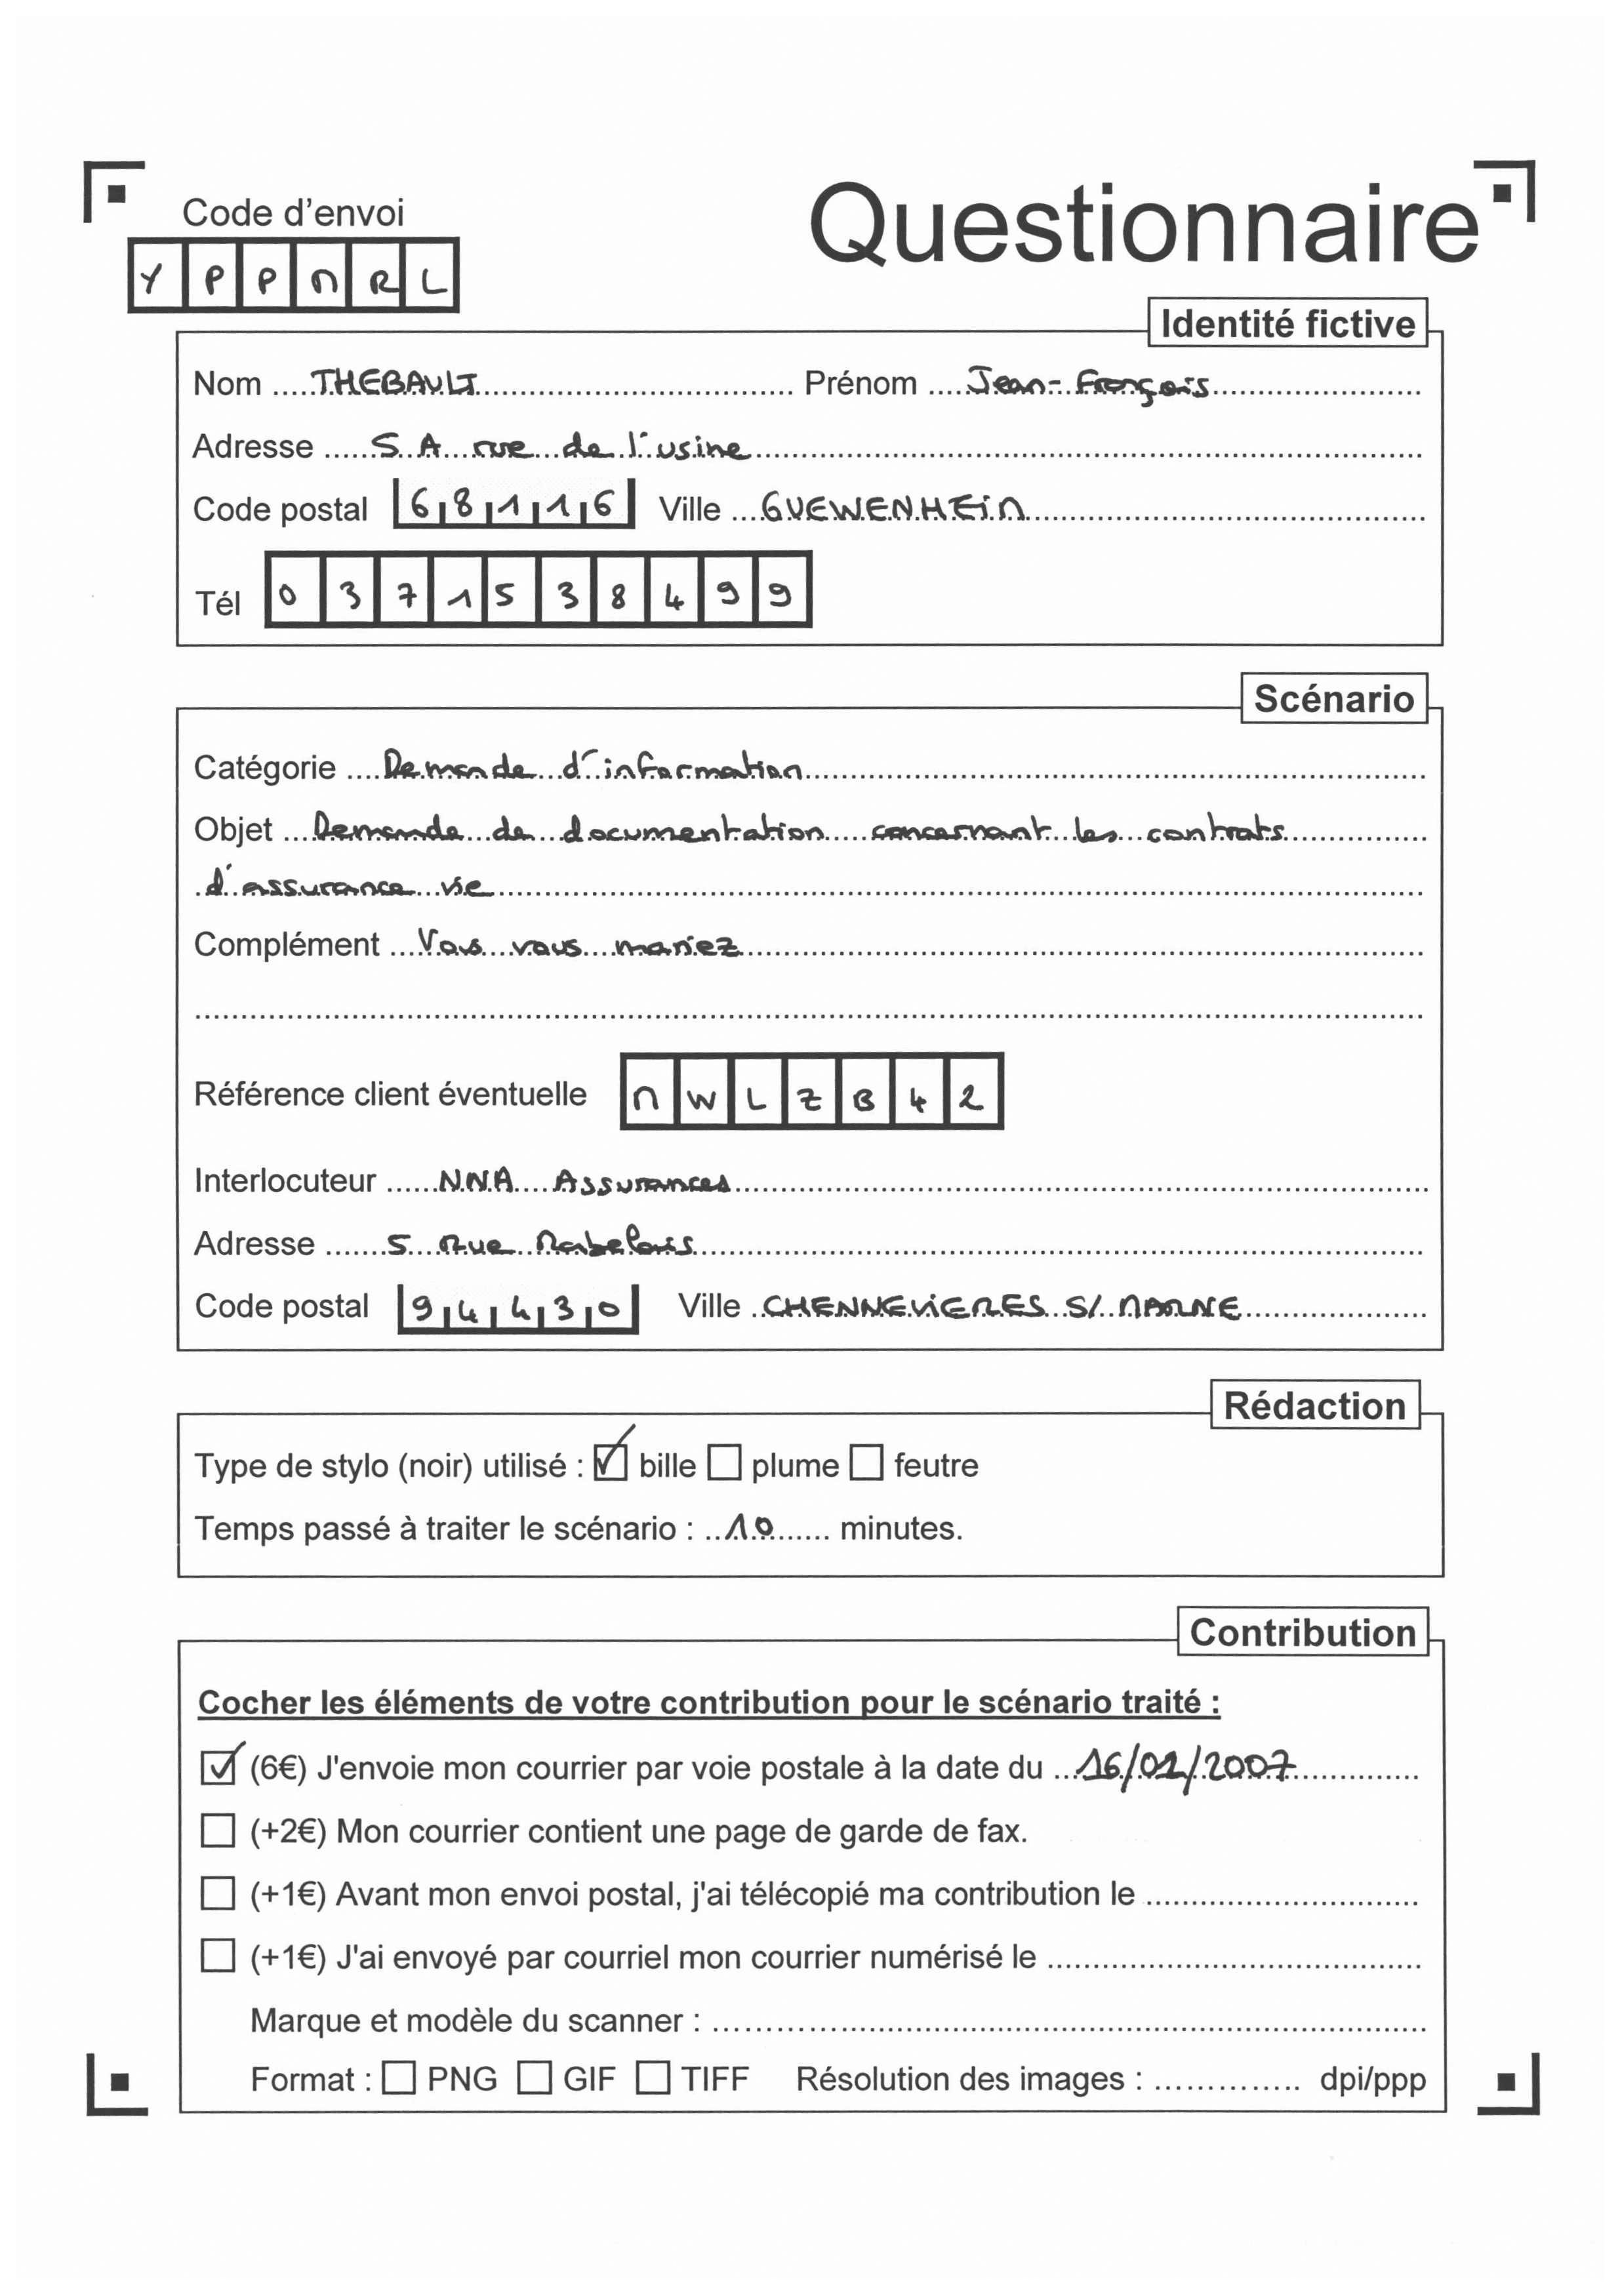 Code d'envoi
Questionnaire
Y P P M R L
Identité fictive
Nom .... THEBAULT .... Prénom .... Jean-François
Adresse .... 5 A rue de l'usine
Code postal 68116 Ville .... GUEWENHEIM
Tél 0 3 7 1 5 3 8 4 9 9
Scénario
Catégorie .... Demande d'information
Objet .... Demande de documentation concernant les contrats
d'assurance vie
Complément .... Vous vous mariez
Référence client éventuelle M W L Z B 4 2
Interlocuteur .... NNA Assurances
Adresse .... 5 Rue Rabelais
Code postal 94430 Ville .... CHENNEVIERES S/ MARNE
Rédaction
Type de stylo (noir) utilisé : ☑ bille ☐ plume ☐ feutre
Temps passé à traiter le scénario : .. 10 .... minutes.
Contribution
Cocher les éléments de votre contribution pour le scénario traité :
☑ (6€) J'envoie mon courrier par voie postale à la date du ... 16/01/2007
☐ (+2€) Mon courrier contient une page de garde de fax.
☐ (+1€) Avant mon envoi postal, j'ai télécopié ma contribution le ....
☐ (+1€) J'ai envoyé par courriel mon courrier numérisé le ....
Marque et modèle du scanner : ....
Format : ☐ PNG ☐ GIF ☐ TIFF Résolution des images : .... dpi/ppp